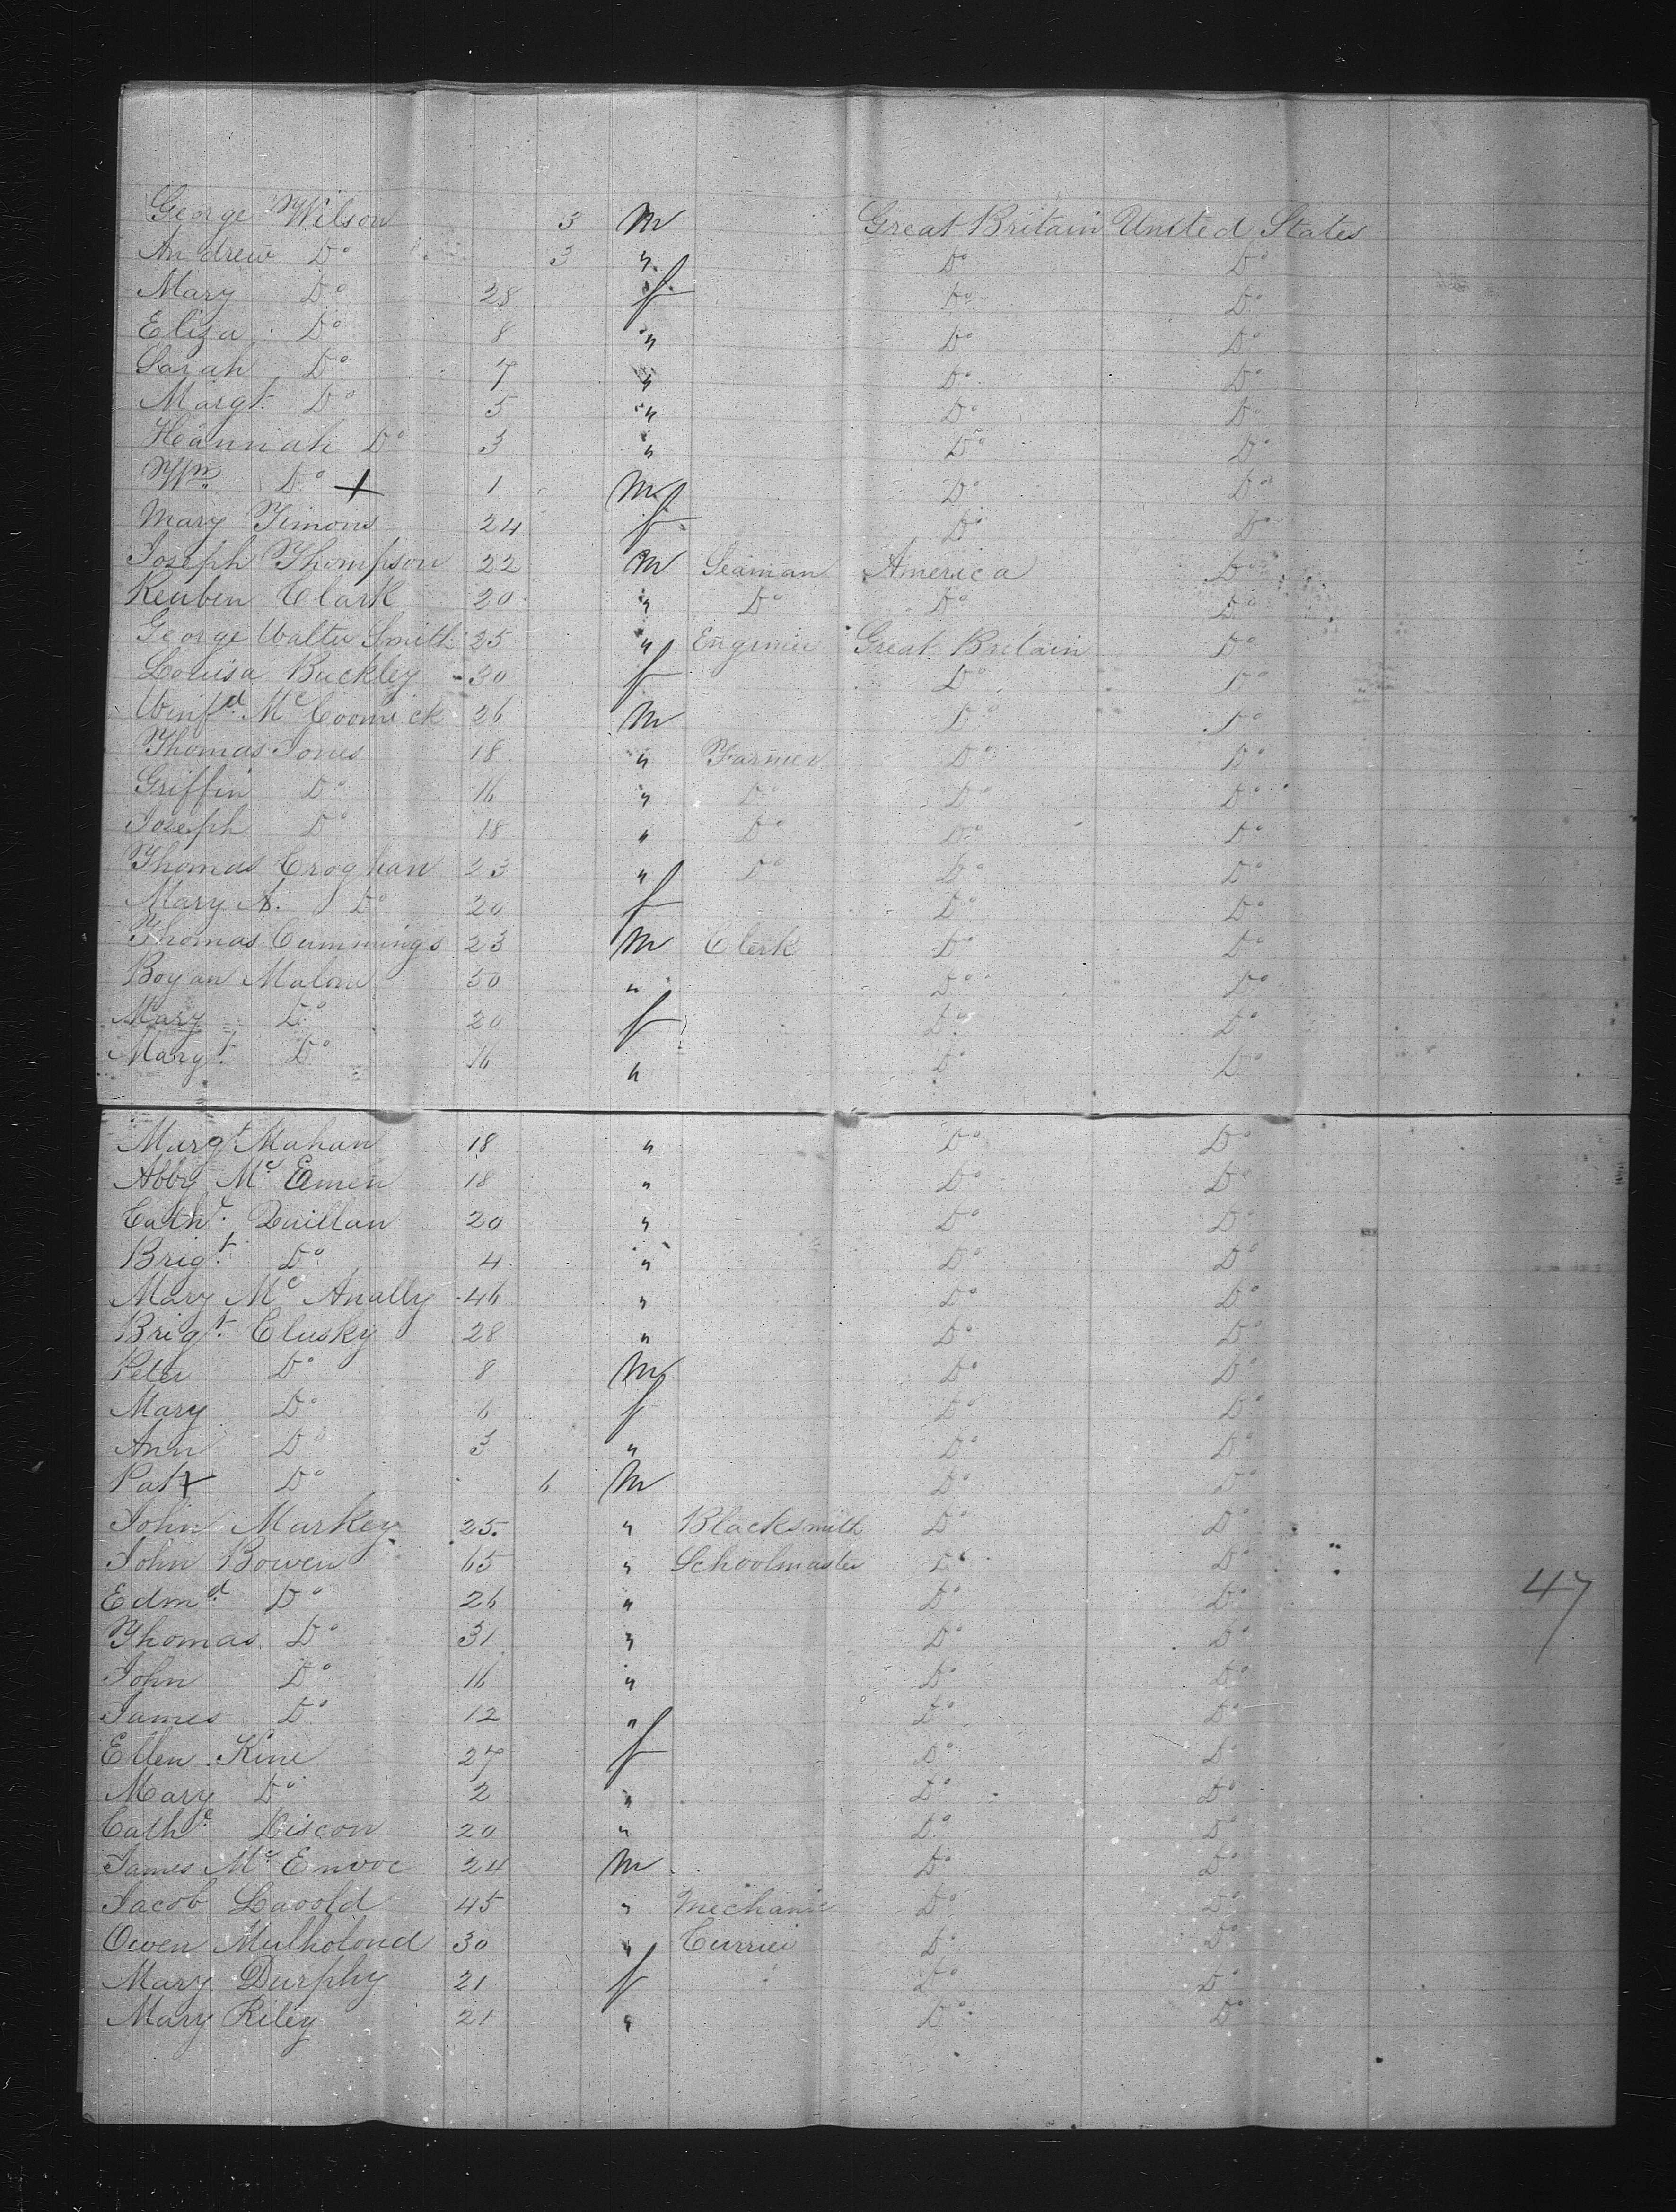 George Wilson 3 M Great Britain United States
Andrew Do 3 " Do Do
Mary Do 28 f Do Do
Eliza Do 8 " Do Do
Sarah Do 7 " Do Do
Margt. Do 5 " Do Do
Hannah Do 3 " Do Do
Wm. Do + 1 M Do Do
Mary Timons 24 f Do Do
Joseph Thompson 22 M Seaman America Do
Reuben Clark 20 " Do Do Do
George Walter Smith 25 " Enginier Great Britain Do
Louisa Buckley 30 f Do Do
Winfd. Mc Coomick 26 M Do Do
Thomas Jones 18 " Farmer Do Do
Griffin Do 16 " Do Do Do
Joseph Do 18 " Do Do Do
Thomas Croghan 23 " Do Do Do
Mary A. Do 20 f Do Do
Thomas Cummings 23 M Clerk Do Do
Boyan Malone 50 " Do Do
Mary Do 20 f Do Do
Margt. Do 16 " Do Do
Margt Mahan 18 " Do Do
Abby Mc 18 " Do Do
Cathe. Quillan 20 " Do Do
Brigt. Do 4 " Do Do
Mary Mc Anally 46 " Do Do
Brigt. Clusky 28 " Do Do
Peter Do 8 M Do Do
Mary Do 6 f Do Do
Ann Do 3 " Do Do
Pat + Do 6 M Do Do
John Markey 25 " Blacksmith Do Do
John Bowen 65 " Schoolmaster Do Do
Edmd. Do 26 " Do Do 47
Thomas Do 31 " Do Do
John Do 16 " Do Do
James Do 12 " Do Do
Ellen Kine 27 f Do Do
Mary Do 2 " Do Do
Cathe. Discon 20 " Do Do
James Mc 24 M Do Do
Jacob 45 " Mechanic Do Do
Owen Mulholond 30 " Currier Do Do
Mary Durphy 21 f Do Do
Mary Riley 21 " Do Do